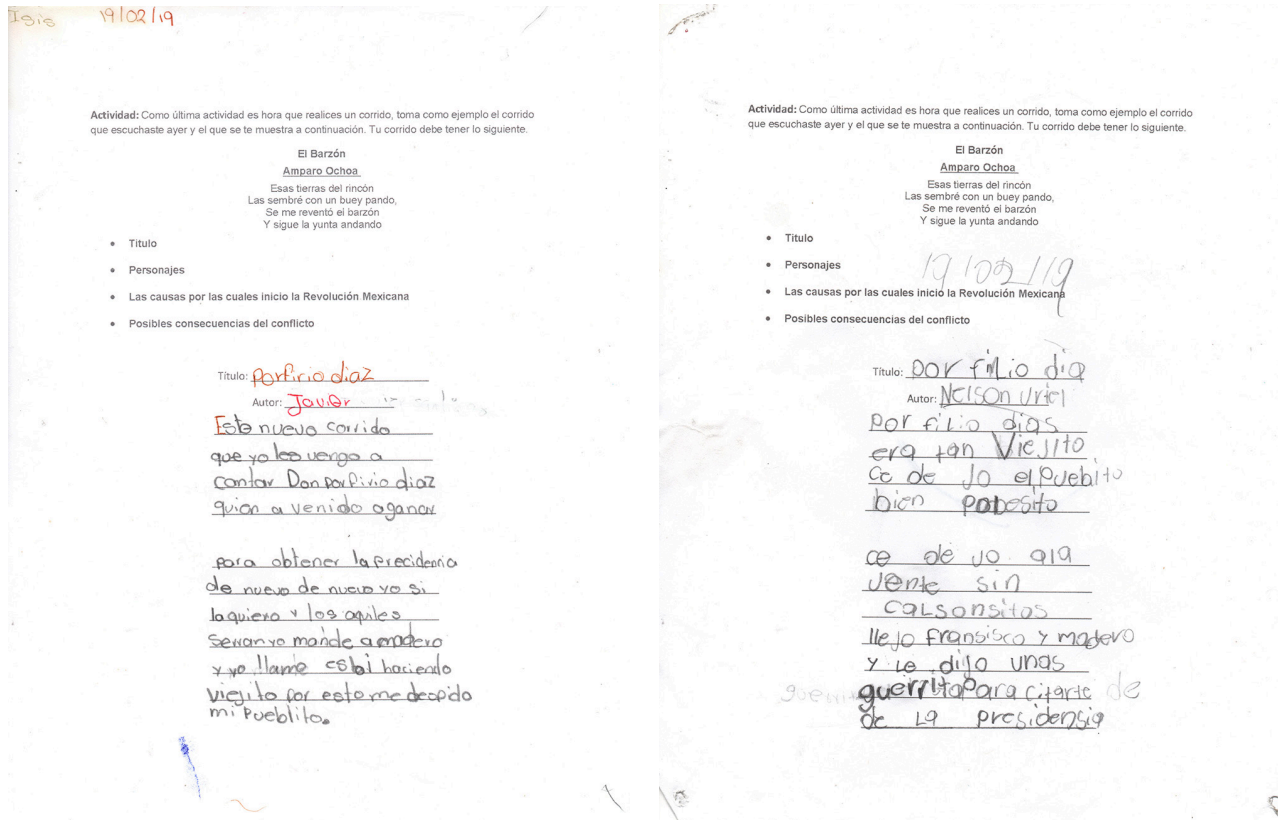 Isis 19/02/19
Actividad: Como última actividad es hora que realices un corrido, toma como ejemplo el corrido
que escuchaste ayer y el que se te muestra a continuación. Tu corrido debe tener lo siguiente.
El Barzón
Amparo Ochoa
Esas tierras del rincón
Las sembré con un buey pando,
Se me reventó el barzón
Y sigue la yunta andando
• Titulo
• Personajes
• Las causas por las cuales inicio la Revolución Mexicana
• Posibles consecuencias del conflicto
Título: Porfirio diaz
Autor: Javier
Este nuevo corrido
que yo les vengo a
contar Don porfirio diaz
quien a venido a ganar
para obtener la precidencia
de nuevo de nuevo yo si
la quiero y los aquiles
serran yo mande a madero
y yo llame estoi haciendo
viejito por esto me despido
mi Pueblito.
Actividad: Como última actividad es hora que realices un corrido, toma como ejemplo el corrido
que escuchaste ayer y el que se te muestra a continuación. Tu corrido debe tener lo siguiente.
El Barzón
Amparo Ochoa
Esas tierras del rincón
Las sembré con un buey pando,
Se me reventó el barzón
Y sigue la yunta andando
• Titulo
• Personajes
19/02/19
• Las causas por las cuales inició la Revolución Mexicana
• Posibles consecuencias del conflicto
Título: por filio dia
Autor: Nelson Uriel
Por filio dias
era tan Viejito
ce de Jo el Puebito
bien pobesito
ce de jo ala
jente sin
calsonsitos
llejo fransisco y madero
y Le dijo unas
guerrita Para citarte de
de La presidensia